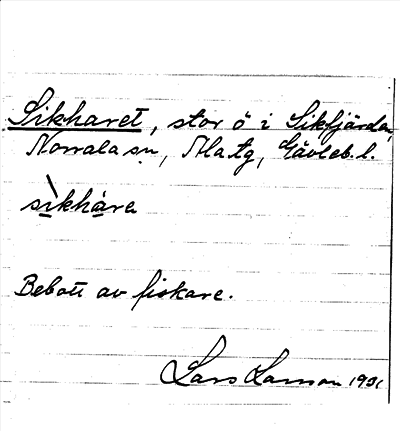 Sikharet, stor ö i Sikfjärden,
Norrala sn, Ala tg, Gävleb. l.
sìkhàre
Bebott av fiskare.
Lars Larsson 1931